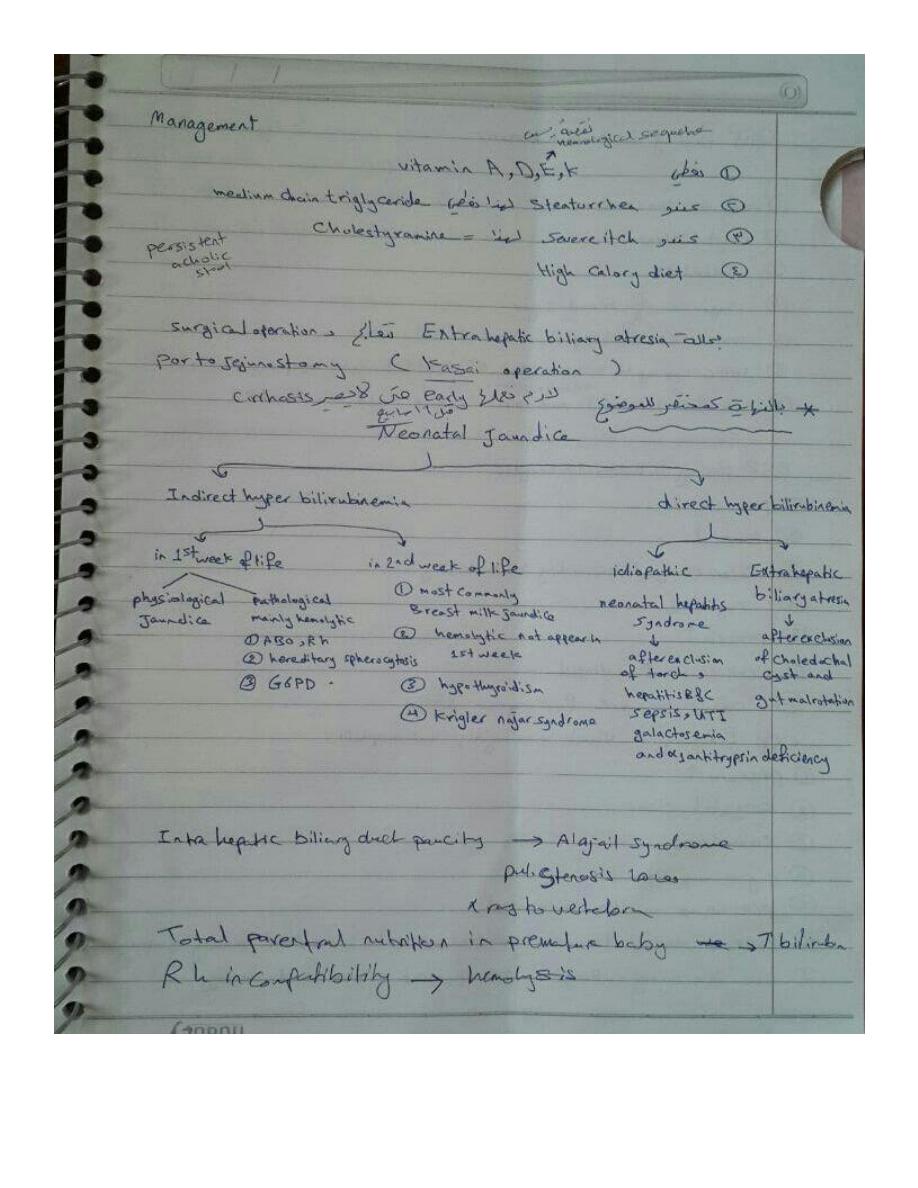 Management
نقصه يسبب neurological sequelae
① نعطي vitamin A, D, E, K
② عندو Steaturrhea لهذا نعطي medium chain triglyceride
③ عندو Severe itch لهذا = Cholestyramine
persistent
acholic
stool
④ High Calory diet
بحالة Extrahepatic biliary atresia تعالج surgical operation
portojejunostomy ( Kasai operation )
لازم نعملها early حتى لا يصير Cirrhosis
* بالنهاية كمختصر للموضوع
Neonatal Jaundice
Indirect hyper bilirubinemia
direct hyper bilirubinemia
in 1st week of life
physiological
Jaundice
pathological
mainly hemolytic
① ABO, Rh
② hereditary spherocytosis
③ G6PD
in 2nd week of life
① most commonly
Breast milk jaundice
② hemolytic not appear in
1st week
③ hypothyroidism
④ Krigler najar syndrome
idiopathic
neonatal hepatitis
syndrome
↓
after exclusion
of torch,
hepatitis B&C
sepsis, UTI
galactosemia
and α1 antitrypsin deficiency
Extrahepatic
biliary atresia
↓
after exclusion
of choledochal
cyst and
gut malrotation
Intra hepatic biliary duct paucity → Alajail syndrome
pul. Stenosis
x ray to vertebra
Total parentral nutrition in premature baby → ↑ bilirubin
Rh incompatibility → hemolysis